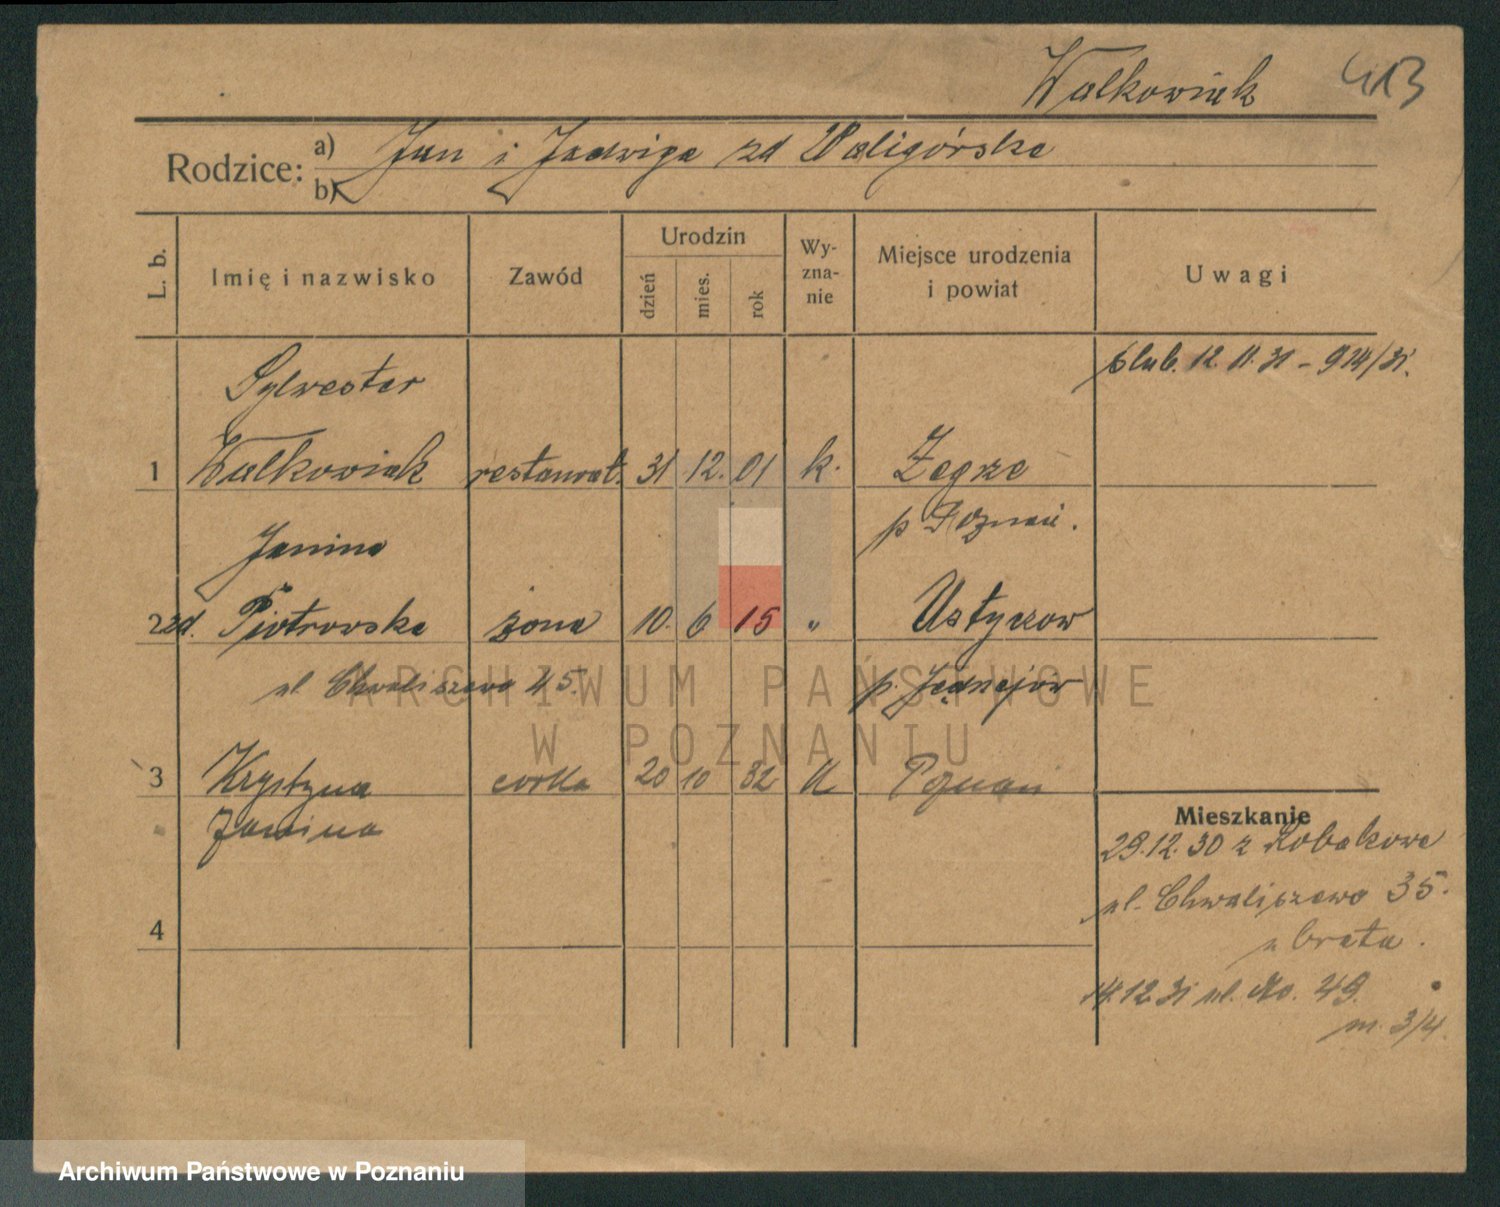 Walkowiak 413
Rodzice: a) Jan i Jadwiga zd Waligórska
b)
L. b.
Imię i nazwisko
Zawód
Urodzin
dzień
mies.
rok
Wy-
zna-
nie
Miejsce urodzenia
i powiat
Uwagi
ślub. 12. 11. 31 – 924/31.
Sylwester
1 Walkowiak restaurat. 31 12. 01 k. Żegrze
p Poznań.
Janina
2 zd. Piotrowska żona 10. 6 15 „ Ustyczow
ul Chwaliszewo 45. p. Jędrzejow
3 Krystyna corka 20 10 32 K Poznań
Janina
4
Mieszkanie
29.12.30 z Robakowa
ul. Chwaliszewo 35.
u brata.
14.12 31 ul. 49.
m. 3/4.
ARCHIWUM PAŃSTWOWE
W POZNANIU
Archiwum Państwowe w Poznaniu